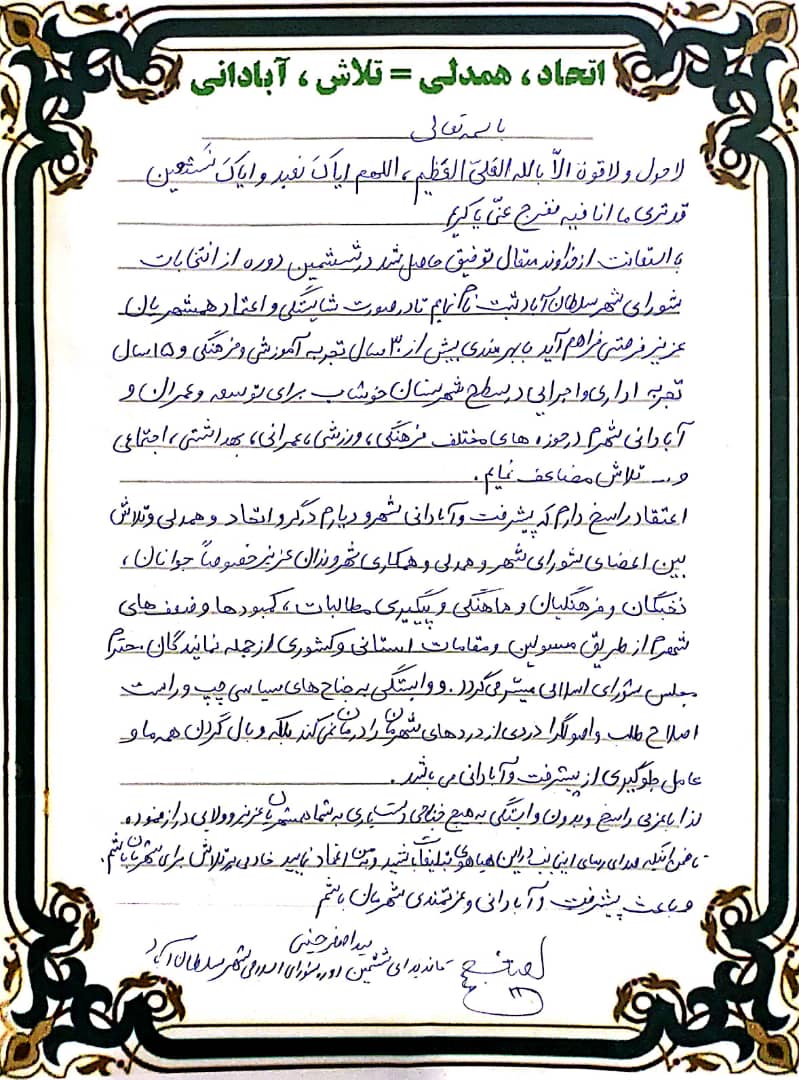 اتحاد ، همدلی = تلاش ، آبادانی
باسمه تعالی
لا حول و لا قوة الّا بالله العَلیّ العَظیم ، اللهم ایاکَ نعبد و ایاکَ نَستَعین
قد تری ما انا فیه ففرج عنّی یا کریم
با استعانت از خداوند متعال توفیق حاصل شد در ششمین دوره از انتخابات
شورای شهر سلطان آباد ثبت نام نمایم تا در صورت شایستگی و اعتماد همشهریان
عزیز فرصتی فراهم آید با بهره مندی بیش از ۳۰ سال تجربه آموزشی و فرهنگی و ۱۵ سال
تجربه اداری و اجرایی در سطح شهرستان خوشاب برای توسعه و عمران و
آبادانی شهرم در حوزه های مختلف فرهنگی ، ورزشی ، عمرانی ، بهداشتی ، اجتماعی
و ... تلاش مضاعف نمایم .
اعتقاد راسخ دارم که پیشرفت و آبادانی شهر و دیارم در گرو اتحاد و همدلی و تلاش
بین اعضای شورای شهر و همدلی و همکاری شهروندان عزیز خصوصاً جوانان ،
نخبگان و فرهنگیان و هماهنگی و پیگیری مطالبات ، کمبودها و ضعف های
شهرم از طریق مسولین و مقامات استانی و کشوری از جمله نمایندگان محترم
مجلس شورای اسلامی میسّر می گردد . و وابستگی به جناح های سیاسی چپ و راست
اصلاح طلب و اصولگرا دردی از دردهای شهرمان را درمان نمی کند بلکه وبال گردن همه ما و
عامل جلوگیری از پیشرفت و آبادانی می باشد .
لذا با عزمی راسخ و بدون وابستگی به هیچ جناحی دست یاری به شما همشهریان عزیز و ولایی دراز نموده
تا ضمن اینکه صدای رسای اینجانب در این هیاهوی تبلیغات باشید و به من اعتماد نمایید خادمی پرتلاش برای شهریان باشم .
و باعث پیشرفت و آبادانی و عزتمندی شهرمان باشم
سید اصغر حسینی
کاندیدای ششمین دوره شورای اسلامی شهر سلطان آباد